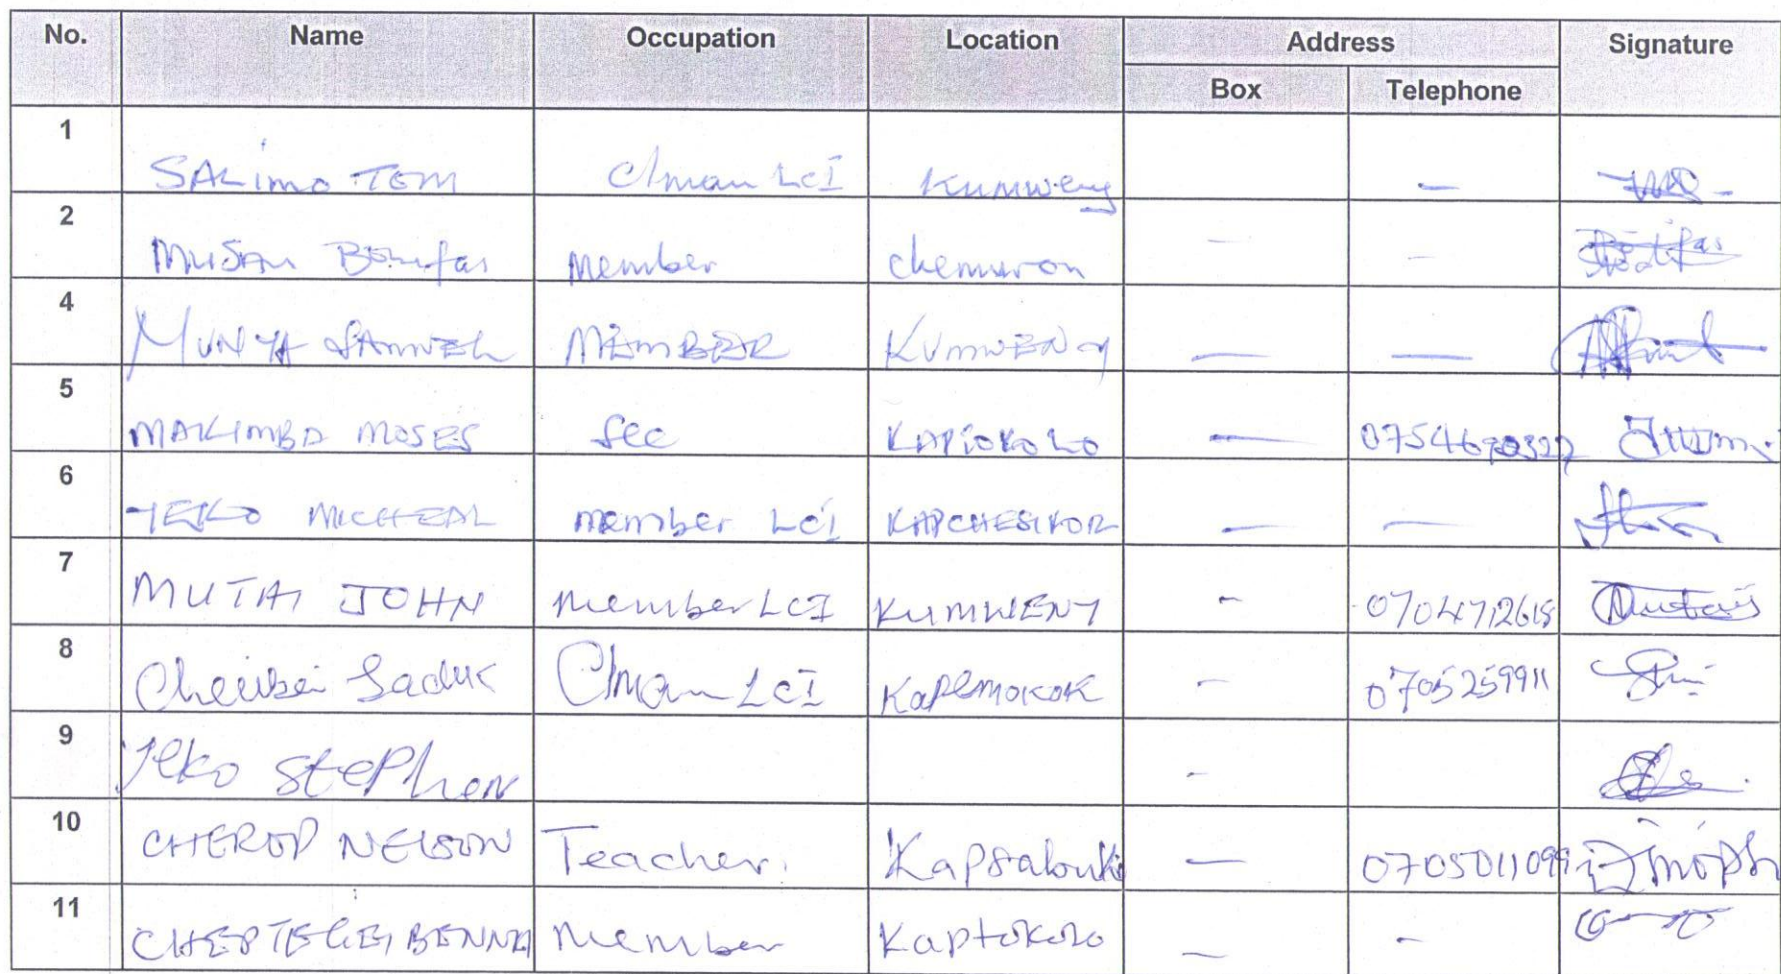 No. Name Occupation Location Address Signature
Box Telephone
1 SALimo TOM C/man LCI Kumweny —
2 Musau Bonifas member chemuron — —
4 MUNYA SAMUEL MEMBER KUMWENY — —
5 MAKIMBA MOSES Sec KAPTOKOLO —
6 YEKO MICHEAL member LCI KAPCHESIKOR — —
7 MUTAI JOHN member LCI KUMWENY - 0704712618 Mutai
8 Saduk C/man LCI Kapemokok - 0705259911
9 Yeko Stephen -
10 CHEROP NELSON Teacher. — 0705011099
11 CHEPTEGEI BENNA member Kaptokolo — -